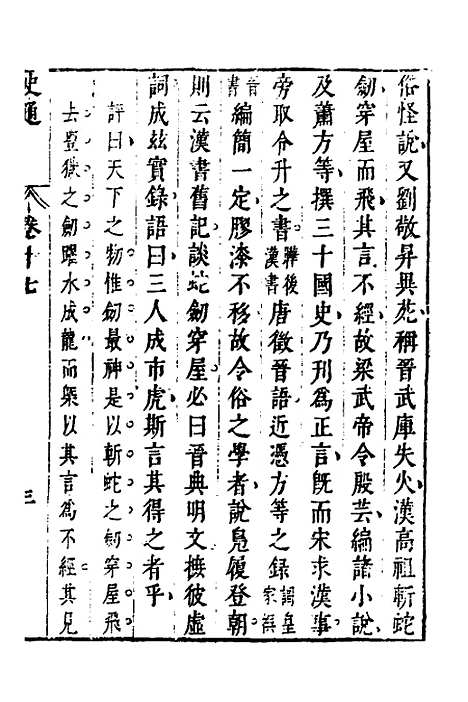 俗怪說又劉敬昇異苑稱晉武庫失火漢高祖斬蛇
劔穿屋而飛其言不經故梁武帝令殷芸編諸小說
及蕭方等撰三十國史乃刊爲正言旣而宋求漢事
旁取令升之書謂後漢書唐徵晉語近憑方等之錄謂皇家撰
晉書編簡一定膠漆不移故令俗之學者說鳧履登朝
則云漢書舊記談蛇劔穿屋必曰晉典明文摭彼虛
詞成茲實錄語曰三人成市虎斯言其得之者乎
評曰天下之物惟劔最神是以斬蛇之劔穿屋飛
去豐獄之劔躍水成龍而槩以其言爲不經其見
史通
卷十七
三